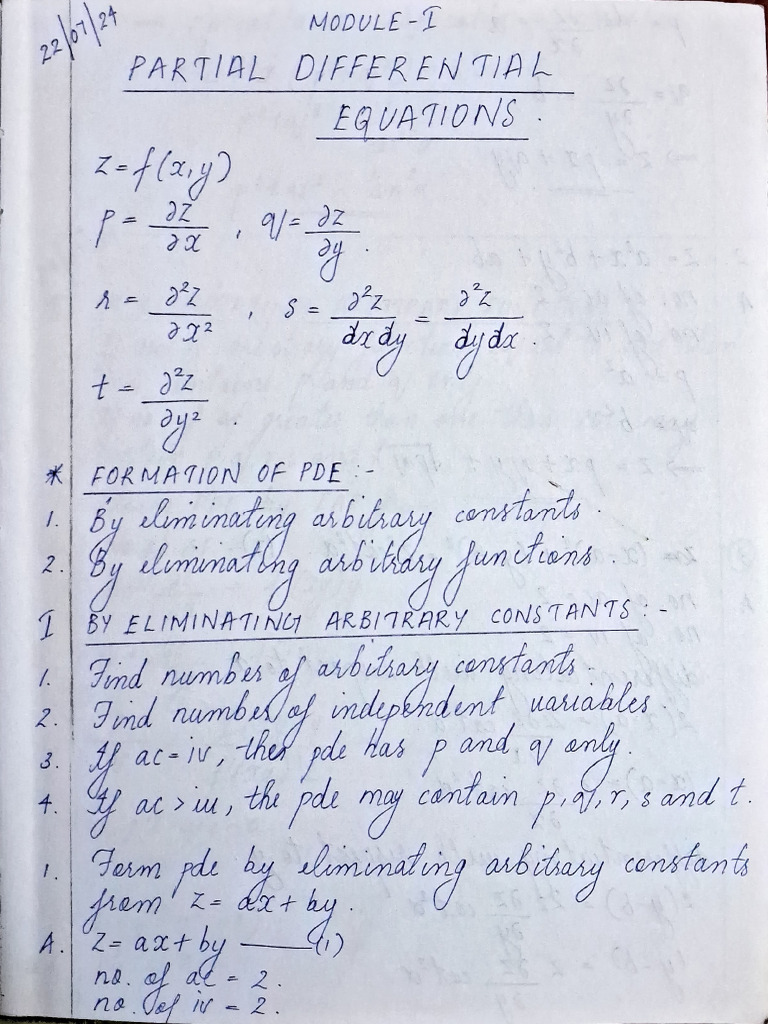 22/07/24
MODULE-I
PARTIAL DIFFERENTIAL
EQUATIONS.
z=f(x,y)
p = ∂z/∂x , q = ∂z/∂y.
r = ∂²z/∂x² , s = ∂²z/dxdy = ∂²z/dydx.
t = ∂²z/∂y².
* FORMATION OF PDE :-
1. By eliminating arbitrary constants.
2. By eliminating arbitrary functions.
I BY ELIMINATING ARBITRARY CONSTANTS :-
1. Find number of arbitrary constants.
2. Find number of independent variables.
3. If ac=iv, then pde has p and q only.
4. If ac > iv, the pde may contain p, q, r, s and t.
1. Form pde by eliminating arbitrary constants
from z = ax + by.
A. z = ax + by —— (1)
no. of ac = 2.
no. of iv = 2.